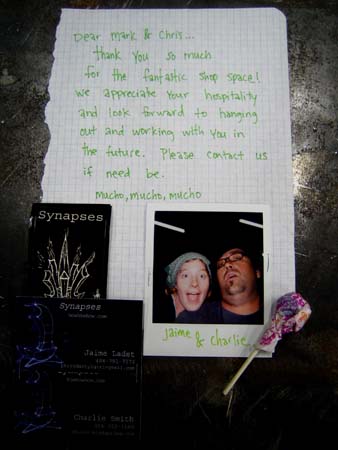 Dear Mark & Chris...
thank you so much
for the fantastic shop space!
we appreciate your hospitality
and look forward to hanging
out and working with you in
the future. Please contact us
if need be.
mucho, mucho, mucho
Synapses
jaime & Charlie
Synapses
Jaime Ladet
Charlie Smith